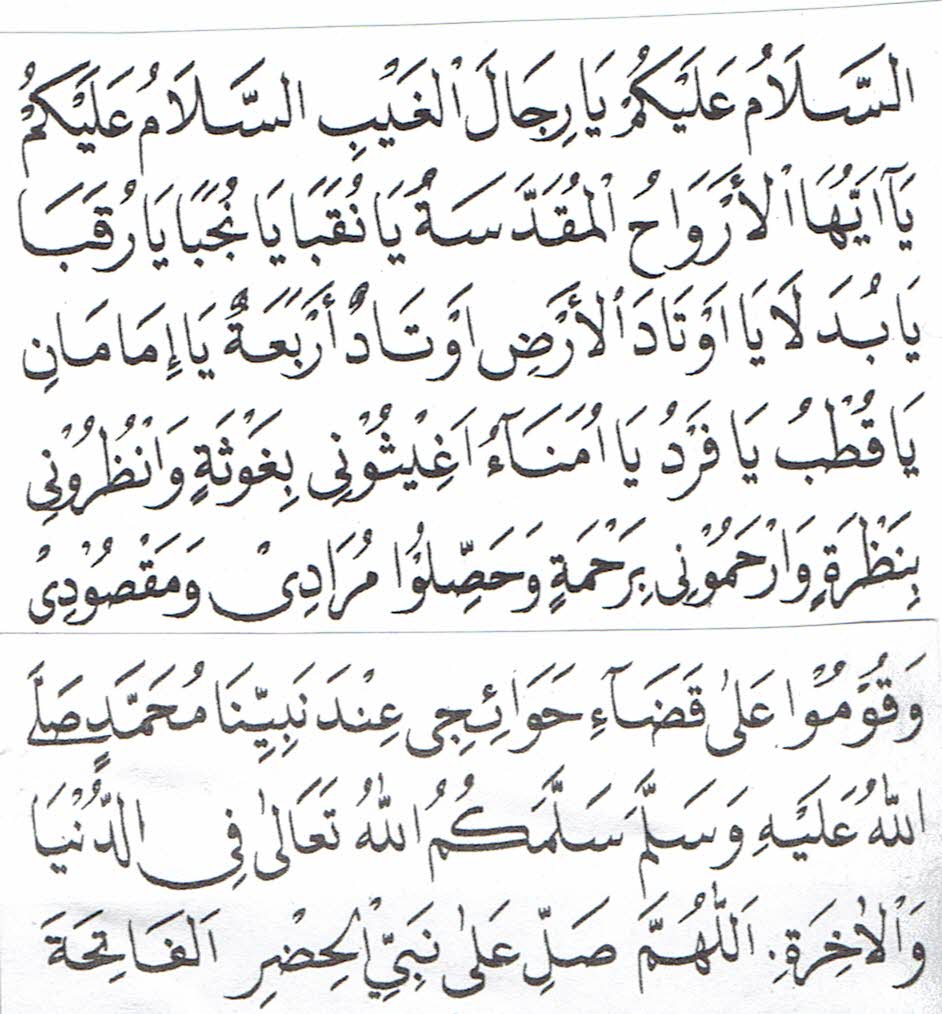 السَّلَامُ عَلَيْكُمْ يَا رِجَالَ الْغَيْبِ السَّلَامُ عَلَيْكُمْ
يَآ اَيُّهَا الْأَرْوَاحُ الْمُقَدَّسَةُ يَا نُقَبَا يَا نُجَبًا يَا رُقَبَا
يَا بُدَلَا يَا اَوْتَادَ الْأَرْضِ اَوْتَادٌ أَرْبَعَةٌ يَا إِمَامَانِ
يَا قُطْبُ يَا فَرْدُ يَا اُمَنَآءُ اَغِيْثُوْنِي بِغَوْثَةٍ وَانْظُرُوْنِي
بِنَظْرَةٍ وَارْحَمُوْنِي بِرَحْمَةٍ وَحَصِّلُوْا مُرَادِيْ وَمَقْصُوْدِيْ
وَقُوْمُوْا عَلٰى قَضَآءِ حَوَائِجِي عِنْدَ نَبِيِّنَا مُحَمَّدٍ صَلَّى
اللهُ عَلَيْهِ وَسَلَّمَ سَلَّمَكُمُ اللهُ تَعَالٰى فِي الدُّنْيَا
وَالْاٰخِرَةِ. اَللّٰهُمَّ صَلِّ عَلٰى نَبِيِّ الْحِضْرِ اَلْفَاتِحَةَ